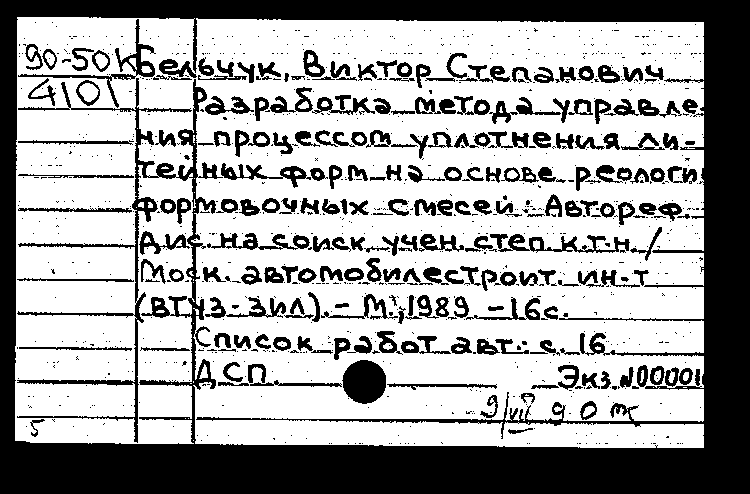 90-50к Бельчук, Виктор Степанович
4101 Разработка метода управле-
ния процессом уплотнения ли-
тейных форм на основе реологи
формовочных смесей: Автореф.
дис. на соиск. учен. степ. к.т.н. /
Моск. автомобилестроит. ин-т
(ВТУЗ-ЗИЛ). - М., 1989 - 16с.
Список работ авт.: с. 16.
ДСП. Экз. N000010
9/VII 90
5